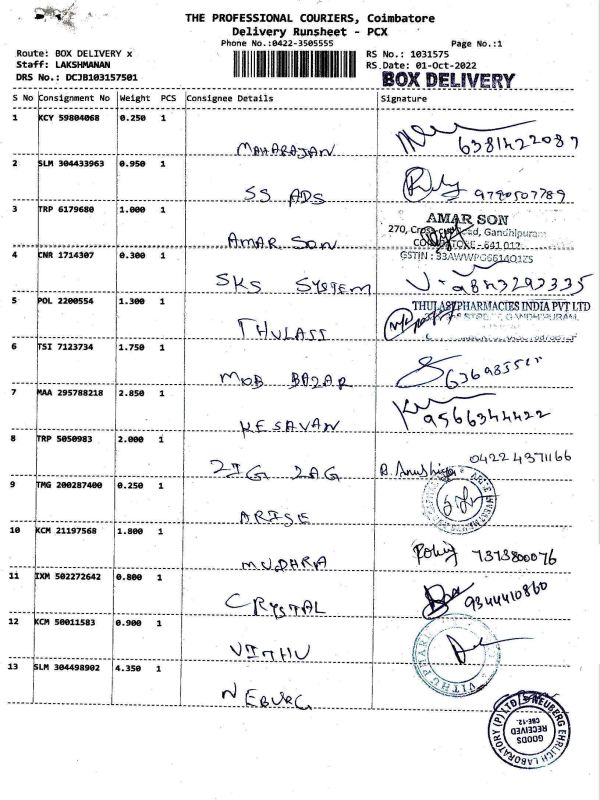 THE PROFESSIONAL COURIERS, Coimbatore
Delivery Runsheet - PCX
Phone No.:0422-3505555 Page No.:1
Route: BOX DELIVERY x RS No.: 1031575
Staff: LAKSHMANAN RS Date: 01-Oct-2022
DRS No.: DCJB103157501 BOX DELIVERY
S No Consignment No Weight PCS Consignee Details Signature
1 KCY 59804068 0.250 1
MAHARAJAN 6381422087
2 SLM 304433963 0.950 1
SS ADS 9790507789
3 TRP 6179680 1.000 1
AMAR SON
270, Cross Cut Road, Gandhipuram
AMAR SON COIMBATORE - 641 012
4 CNR 1714307 0.300 1 GSTIN : 33AWWPG6614Q1ZS
SKS SYSTEM 9843293335
5 POL 2200554 1.300 1 THULASI PHARMACIES INDIA PVT LTD
THULASI
6 TSI 7123734 1.750 1
MOB BAZAR
7 MAA 295788218 2.850 1
KESAVAN 9566344422
8 TRP 5050983 2.000 1
ZIG ZAG B. Anushiya 0422 4371166
9 TMG 200287400 0.250 1
ARISE
10 KCM 21197568 1.800 1
MUDARA 7373800076
11 IXM 502272642 0.800 1
CRYSTAL 9344410860
12 KCM 50011583 0.900 1
VITHU
13 SLM 304498902 4.350 1
NEBURG
NEUBERG EHRLICH LABORATORY (P) LTD
GOODS
RECEIVED
CBE-12.